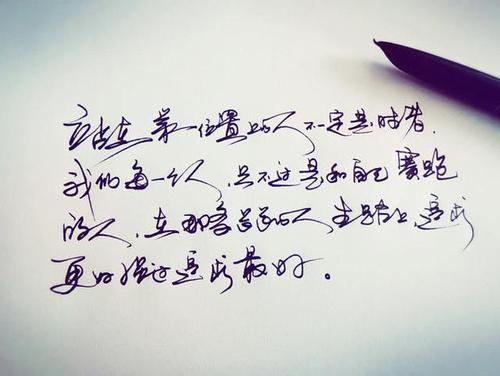 应站在第一位置上的人不一定是胜者.
我们每一个人,只不过是和自己赛跑
的人,在那条长长的人生路上,追求
更好强过追求最好。